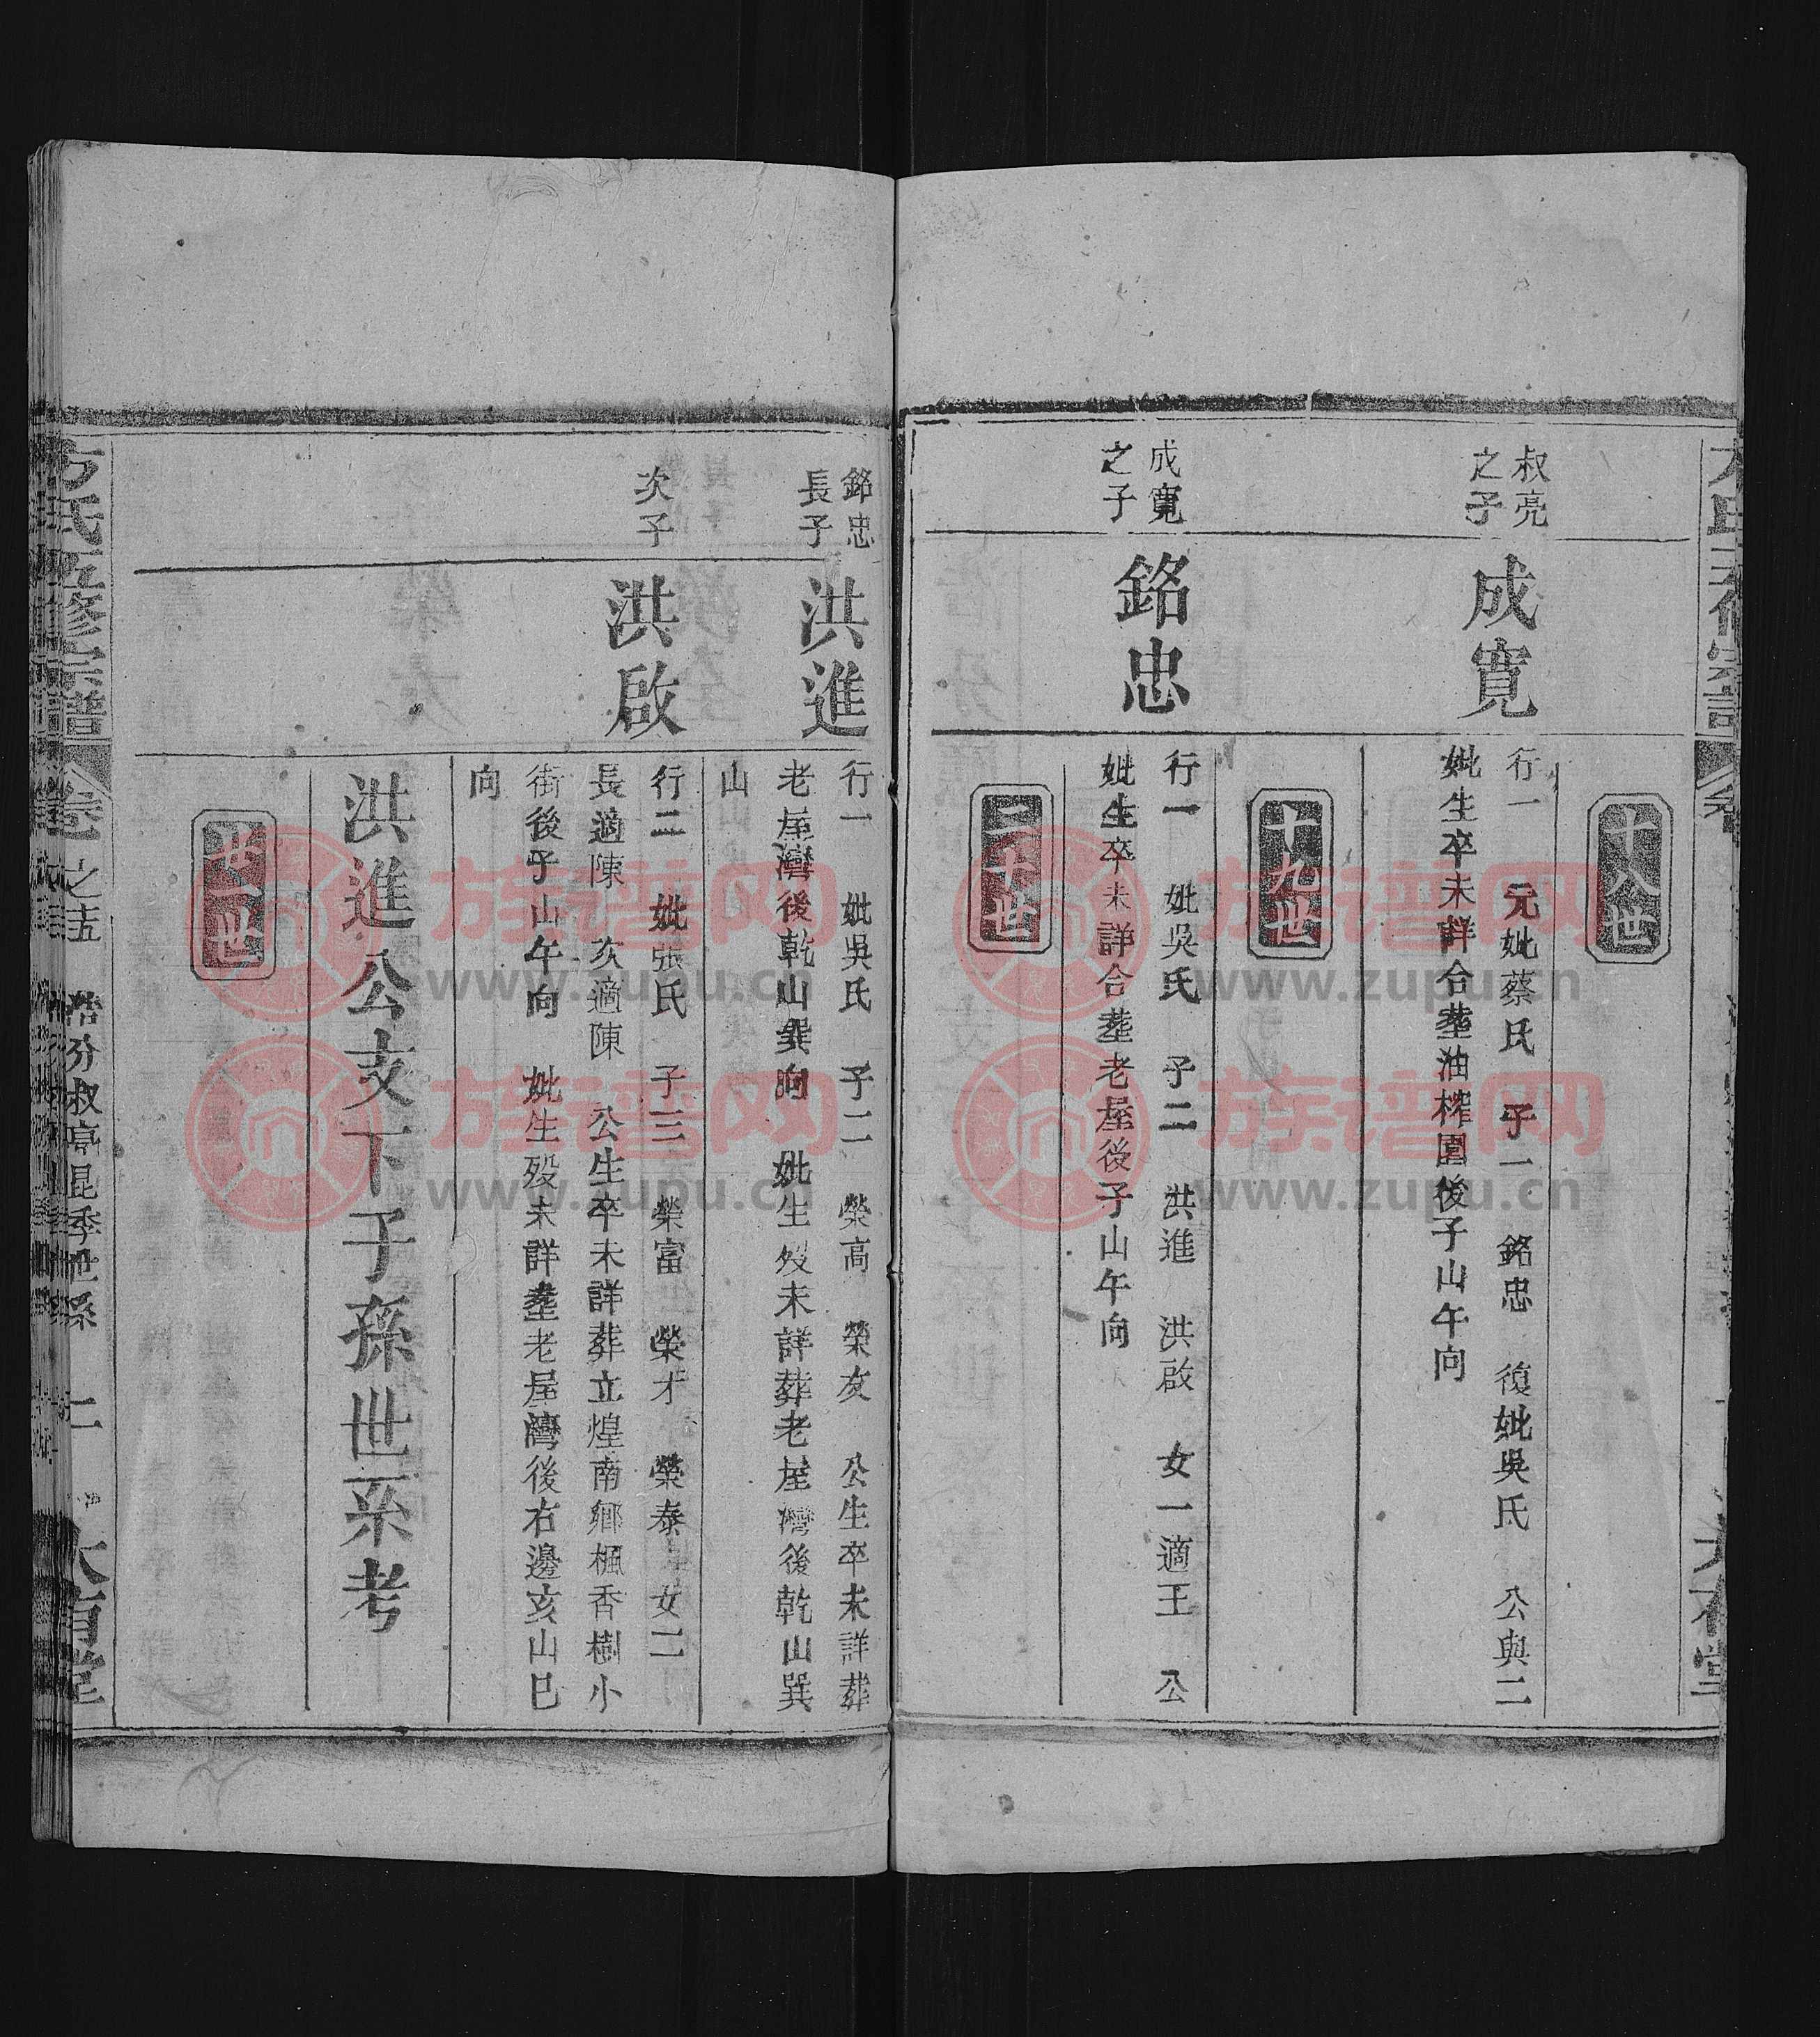 十八世
叔亮
之子
成寬
行一 元妣蔡氏 子一 銘忠 復妣吳氏 公與二
妣生卒未詳合塟油榨園後子山午向
十九世
成寬
之子
銘忠
行一 妣吳氏 子二 洪進 洪啟 女一適王 公
妣生卒未詳合塟老屋後子山午向
二十世
銘忠
長子
洪進
行一 妣吳氏 子二 榮高 榮友 公生卒未詳葬
老屋灣後乾山巽向 妣生歿未詳葬老屋灣後乾山巽
山
次子
洪啟
行二 妣張氏 子三 榮富 榮才 榮泰 女二
長適陳 次適陳 公生卒未詳葬立煌南鄉楓香樹小
街後子山午向 妣生歿未詳塟老屋灣後右邊亥山巳
向
洪進公支下子孫世系考
廿一世
方氏五修宗譜
卷之十五
分叔亭昆季世系 二
大有堂
族谱网
www.zupu.cn
族谱网
www.zupu.cn
族谱网
www.zupu.cn
族谱网
www.zupu.cn